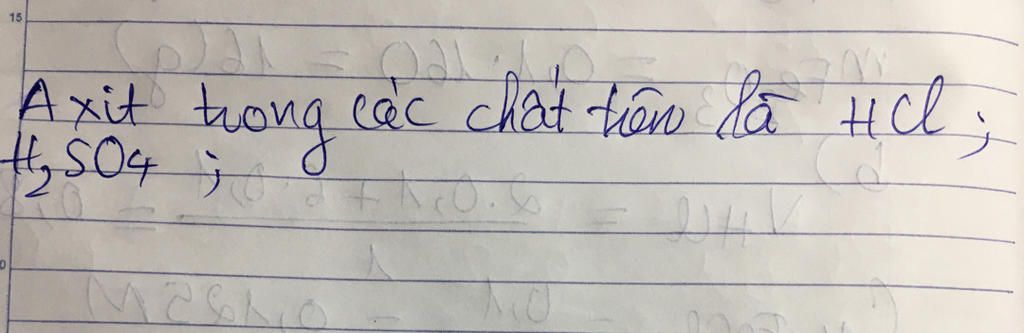 15
Axit trong các chất trên là HCl ;
H₂SO₄ ;